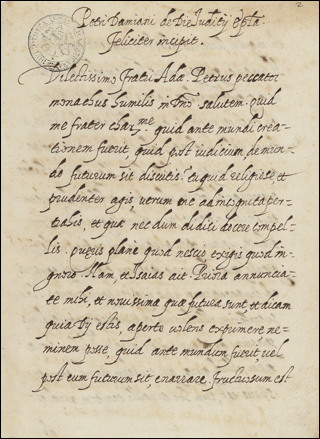 2
Petri Damiani de Die Iudicij epła.
feliciter incipit.
Dilectissimo fratri Adæ. Petrus peccator
monachus humilis in salutem. quid
me frater quid ante mundi crea-
tionem fuerit, quid post iudicium, de mun-
do futurum sit discutis: tu quid religiose, et
prudenter agis, verum me ad incognita per-
trahis, et quæ nec dum didici docere compel-
lis. queris plane quod nescio, exigis quod in-
gnoro. Nam, et Isaias ait Priora annuncia-
te mihi, et novissima quæ futura sunt, et dicam
quia Dij estis, aperte volens exprimere ne-
minem posse, quid ante mundum fuerit, vel
post eum futurum sit, enarrare. fructuosum est